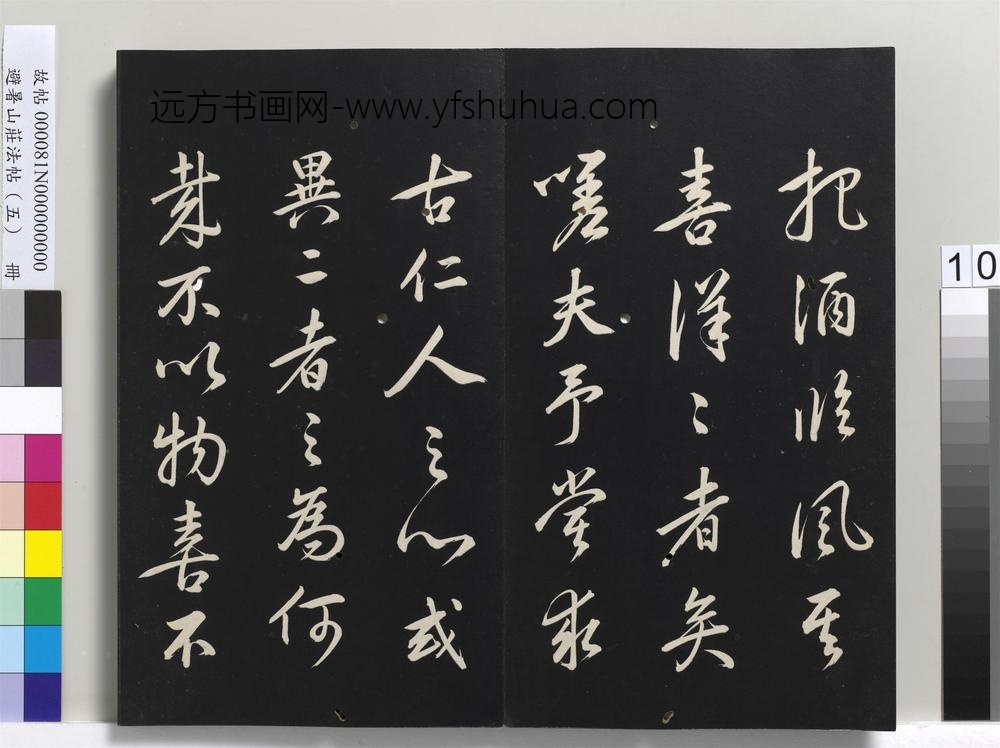 远方书画网-www.yfshuhua.com
把酒臨風其
喜洋々者矣
嗟夫予嘗求
古仁人之心或
異二者之為何
哉不以物喜不
故帖 000081N000000000
避暑山莊法帖（五） 冊
10